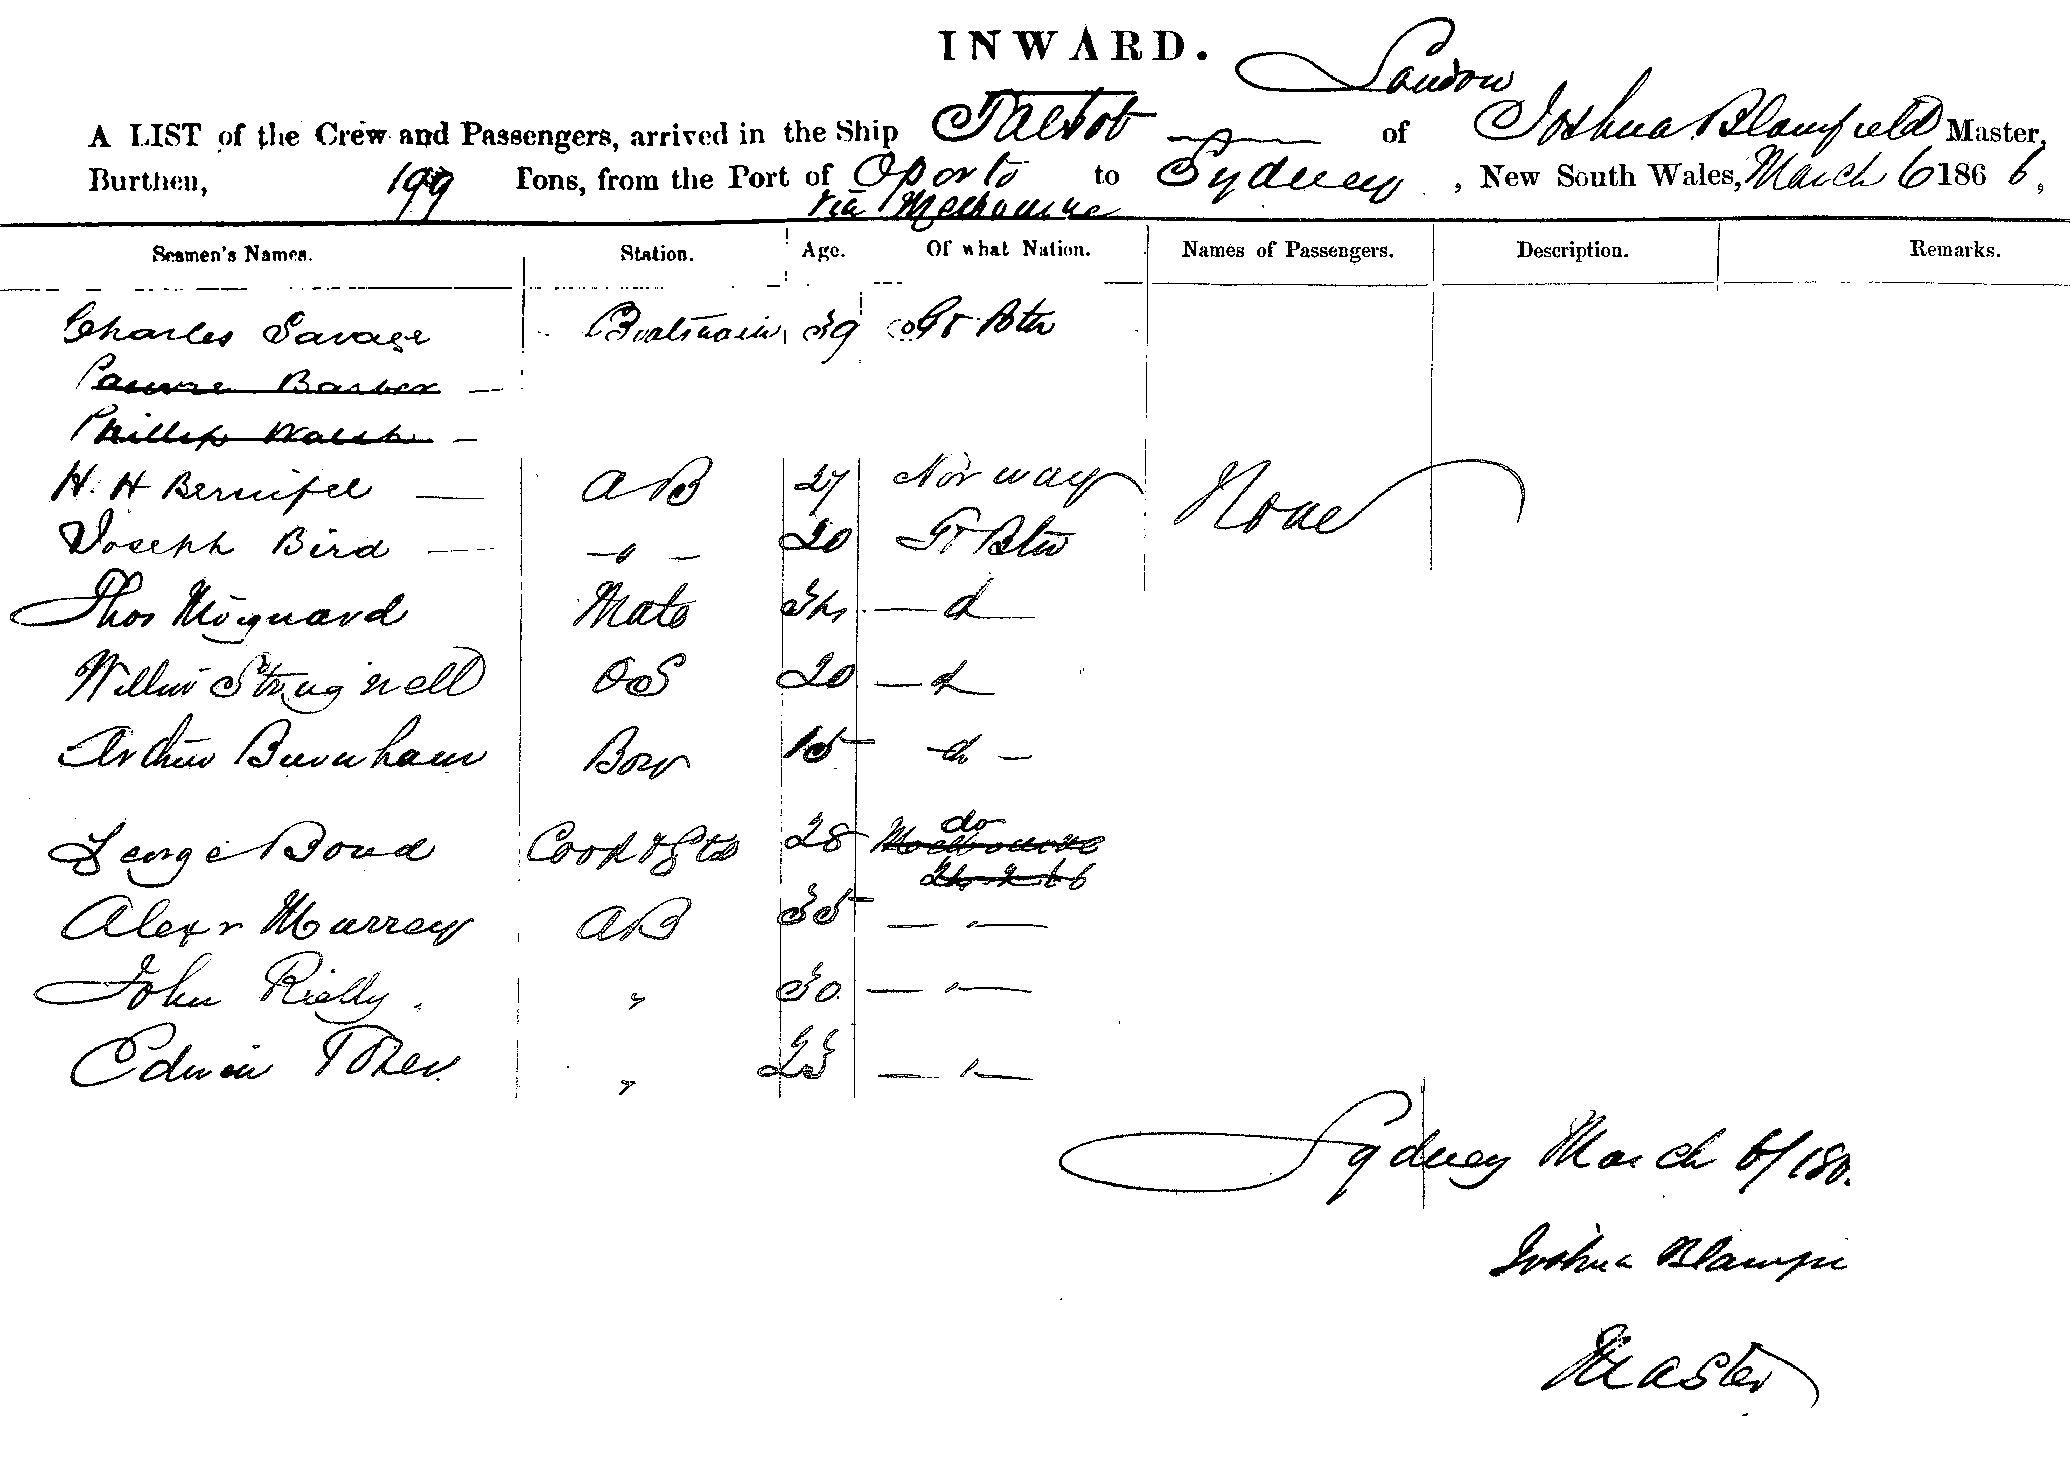 INWARD.
London
A LIST of the Crew and Passengers, arrived in the Ship Talbot of Joshua Blamfield Master,
Burthen, 199 Tons, from the Port of Oporto to Sydney, New South Wales, March 6 1866,
via Melbourne
Seamen's Names. Station. Age. Of what Nation. Names of Passengers. Description. Remarks.
Charles Savage Boatswain 39 Gt Btn
Barber —
Phillip Walsh —
H. H — AB 27 Norway None
Joseph Bird — — o — 20 Gt Btn
Thos Mate — d —
Strugnell OS 20 — d —
Arthur Burnham Boy 15 — do —
do
George Bond Cook & Std 28 Melbourne
66
Alexr Murray AB 35 — " —
John Rielly. " 30 — " —
Edwin Toker " 23 — " —
Sydney March 6/186.
Joshua
Master